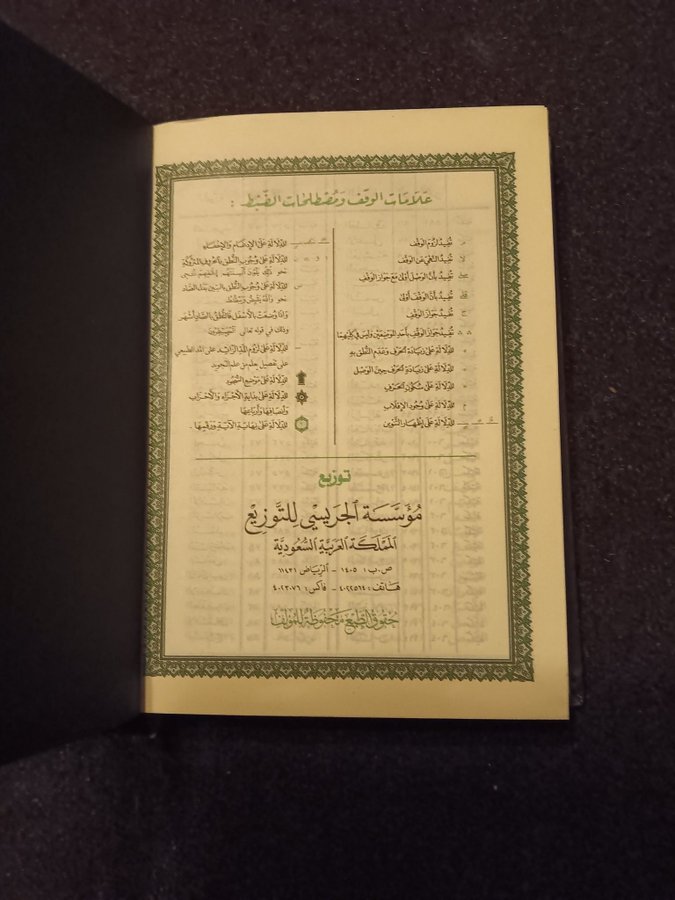 عَلَامَات الوَقْف وَمُصْطَلَحَات الضَّبْط :
م تُفِيدُ لُزُومَ الوَقْفِ
لا تُفِيدُ النَّهْيَ عَنِ الوَقْفِ
صلے تُفِيدُ بِأَنَّ الوَصْلَ أَوْلَى مَعَ جَوَازِ الوَقْفِ
قلے تُفِيدُ بِأَنَّ الوَقْفَ أَوْلَى
ج تُفِيدُ جَوَازَ الوَقْفِ
تُفِيدُ جَوَازَ الوَقْفِ بِأَحَدِ المَوْضِعَيْنِ وَلَيْسَ فِي كِلَيْهِمَا
لِلدِّلَالَةِ عَلَى زِيَادَةِ الحَرْفِ وَعَدَمِ النُّطْقِ بِهِ
لِلدِّلَالَةِ عَلَى زِيَادَةِ الحَرْفِ حِينَ الوَصْلِ
لِلدِّلَالَةِ عَلَى سُكُونِ الحَرْفِ
م لِلدِّلَالَةِ عَلَى وُجُودِ الإِقْلَابِ
لِلدِّلَالَةِ عَلَى إِظْهَارِ التَّنْوِينِ
لِلدِّلَالَةِ عَلَى الإِدْغَامِ وَالإِخْفَاءِ
لِلدِّلَالَةِ عَلَى وُجُوبِ النُّطْقِ بِالحُرُوفِ المَتْرُوكَةِ
س لِلدِّلَالَةِ عَلَى وُجُوبِ النُّطْقِ بِالسِّينِ بَدَلَ الصَّادِ
نحو وَاللَّهُ يَقْبِضُ وَيَبْصُطُ
وَإِذَا وُضِعَتْ بِالأَسْفَلِ فَالنُّطْقُ بِالصَّادِ أَشْهَر
وذلك في قوله تعالى
لِلدِّلَالَةِ عَلَى لُزُومِ المَدِّ الزَّائِدِ على المد الطبيعي
على تفصيل يعلم من علم التجويد
لِلدِّلَالَةِ عَلَى مَوْضِعِ السُّجُودِ
لِلدِّلَالَةِ عَلَى بِدَايَةِ الأَجْزَاءِ وَالأَحْزَابِ
وَأَنْصَافِهَا وَأَرْبَاعِهَا
لِلدِّلَالَةِ عَلَى نِهَايَةِ الآيَةِ وَرَقْمِهَا .
توزيع
مُؤَسَّسَة الجُرَيسِي لِلتَّوْزِيع
المَمْلَكَة العَرَبِيَّة السُّعُودِيَّة
ص.ب : ١٤٠٥ - الرياض ١١٤٣١
هاتف : ٤٠٢٢٥٦٤ - فاكس : ٤٠٢٣٠٧٦
حُقُوق الطَّبْع مَحْفُوظَة لِلمُؤَلِّف